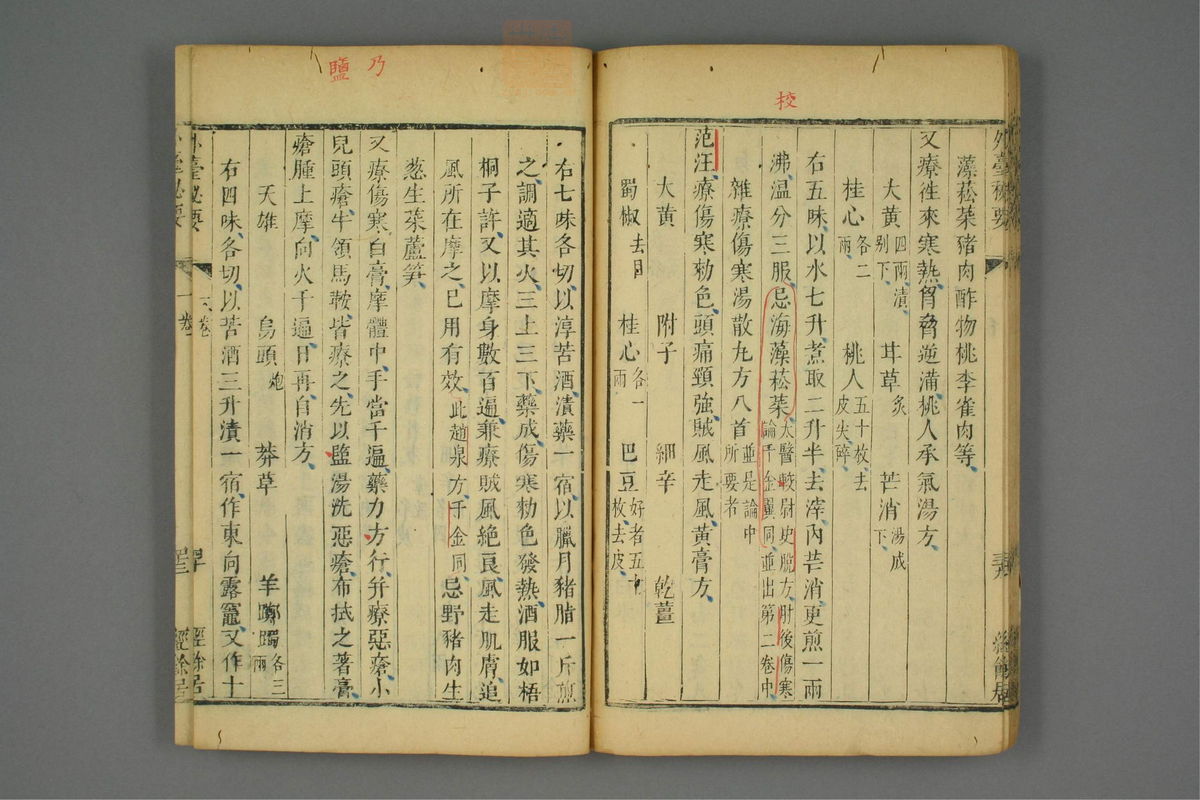 校
外臺秘要
藻菘菜豬肉酢物桃李雀肉等
又療徃來寒熱胷脅逆滿桃人承氣湯方
大黃四兩漬别下 甘草炙 芒消湯成下
桂心各二兩 桃人五十枚去皮尖碎
右五味以水七升煮取二升半去滓内芒消更煎一兩
沸温分三服忌海藻菘菜太醫校尉史脫方肘後傷寒論千金翼同並出第二卷中
雜療傷寒湯散丸方八首並是論中所要者
范汪療傷寒勑色頭痛頸強賊風走風黃膏方
大黃 附子 細辛 乾薑
蜀椒去目 桂心各一兩 巴豆好者五十枚去皮
乃
鹽
右七味各切以淳苦酒漬藥一宿以臘月豬脂一斤煎
之調適其火三上三下藥成傷寒勑色發熱酒服如梧
桐子許又以摩身數百遍兼療賊風絶良風走肌膚追
風所在摩之已用有效此趙泉方千金同忌野豬肉生
葱生菜蘆笋
又療傷寒白膏摩體中手當千遍藥力方行并療惡瘡小
兒頭瘡牛領馬鞍皆療之先以䀋湯洗惡瘡布拭之著膏
瘡腫上摩向火千遍日再自消方
天雄 烏頭炮 莽草 羊躑躅各三兩
右四味各切以苦酒三升漬一宿作東向露竈又作十
外臺秘要
一卷
經餘居